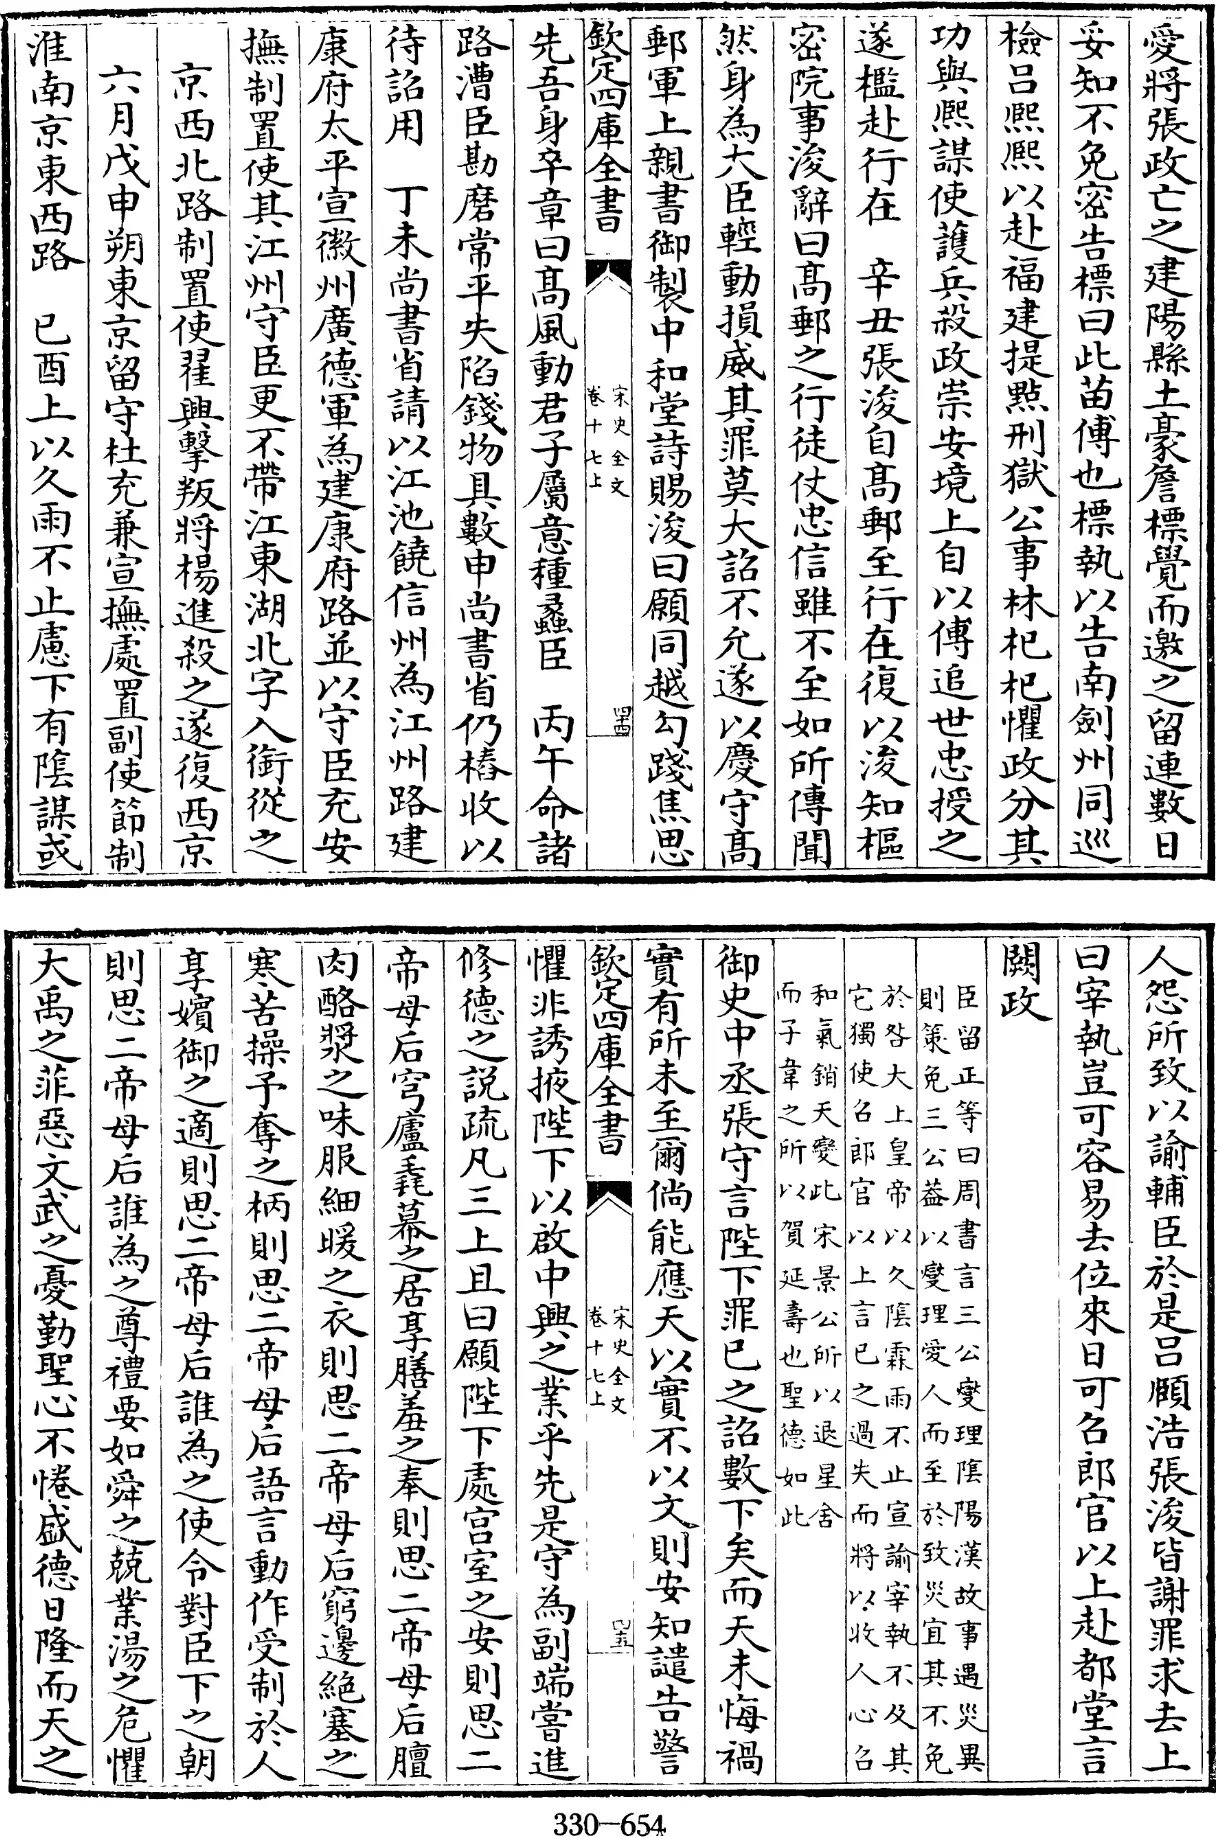 愛將張政亡之建陽縣土豪詹標覺而邀之留連數日
妥知不免密告標曰此苗傅也標執以告南劍州同巡
檢吕熙熙以赴福建提點刑獄公事林杞杞懼政分其
功與熙謀使䕶兵殺政崇安境上自以傅追世忠授之
遂檻赴行在　辛丑張浚自髙郵至行在復以浚知樞
密院事浚辭曰髙郵之行徒仗忠信雖不至如所傳聞
然身為大臣輕動損威其罪莫大詔不允遂以慶守髙
郵軍上親書御製中和堂詩賜浚曰願同越勾踐焦思
欽定四庫全書
宋史全文
卷十七上
四十四
先吾身卒章曰髙風動君子屬意種蠡臣　丙午命諸
路漕臣勘磨常平失陷錢物具數申尚書省仍樁收以
待詔用　丁未尚書省請以江池饒信州為江州路建
康府太平宣徽州廣德軍為建康府路並以守臣充安
撫制置使其江州守臣更不帶江東湖北字入銜從之
京西北路制置使翟興擊叛將楊進殺之遂復西京
六月戊申朔東京留守杜充兼宣撫處置副使節制
淮南京東西路　已酉上以久雨不止慮下有隂謀或
人怨所致以諭輔臣於是吕頤浩張浚皆謝罪求去上
曰宰執豈可容易去位來日可名郎官以上赴都堂言
闕政
臣留正等曰周書言三公燮理隂陽漢故事遇災異
則策免三公葢以燮理愛人而至於致災宜其不免
於咎大上皇帝以久隂霖雨不止宣諭宰執不及其
它獨使名郎官以上言已之過失而將以收人心名
和氣銷天變此宋景公所以退星舍
而子韋之所以賀延壽也聖德如此
御史中丞張守言陛下罪已之詔數下矣而天未悔禍
實有所未至爾倘能應天以實不以文則安知譴告警
欽定四庫全書
宋史全文
卷十七上
四十五
懼非誘掖陛下以啟中興之業乎先是守為副端嘗進
修德之說疏凡三上且曰願陛下處宫室之安則思二
帝母后穹廬毳幕之居享膳羞之奉則思二帝母后膻
肉酪漿之味服細暖之衣則思二帝母后窮邊絶塞之
寒苦操予奪之柄則思二帝母后語言動作受制於人
享嬪御之適則思二帝母后誰為之使令對臣下之朝
則思二帝母后誰為之尊禮要如舜之兢業湯之危懼
大禹之菲惡文武之憂勤聖心不惓盛德日隆而天之
330-654